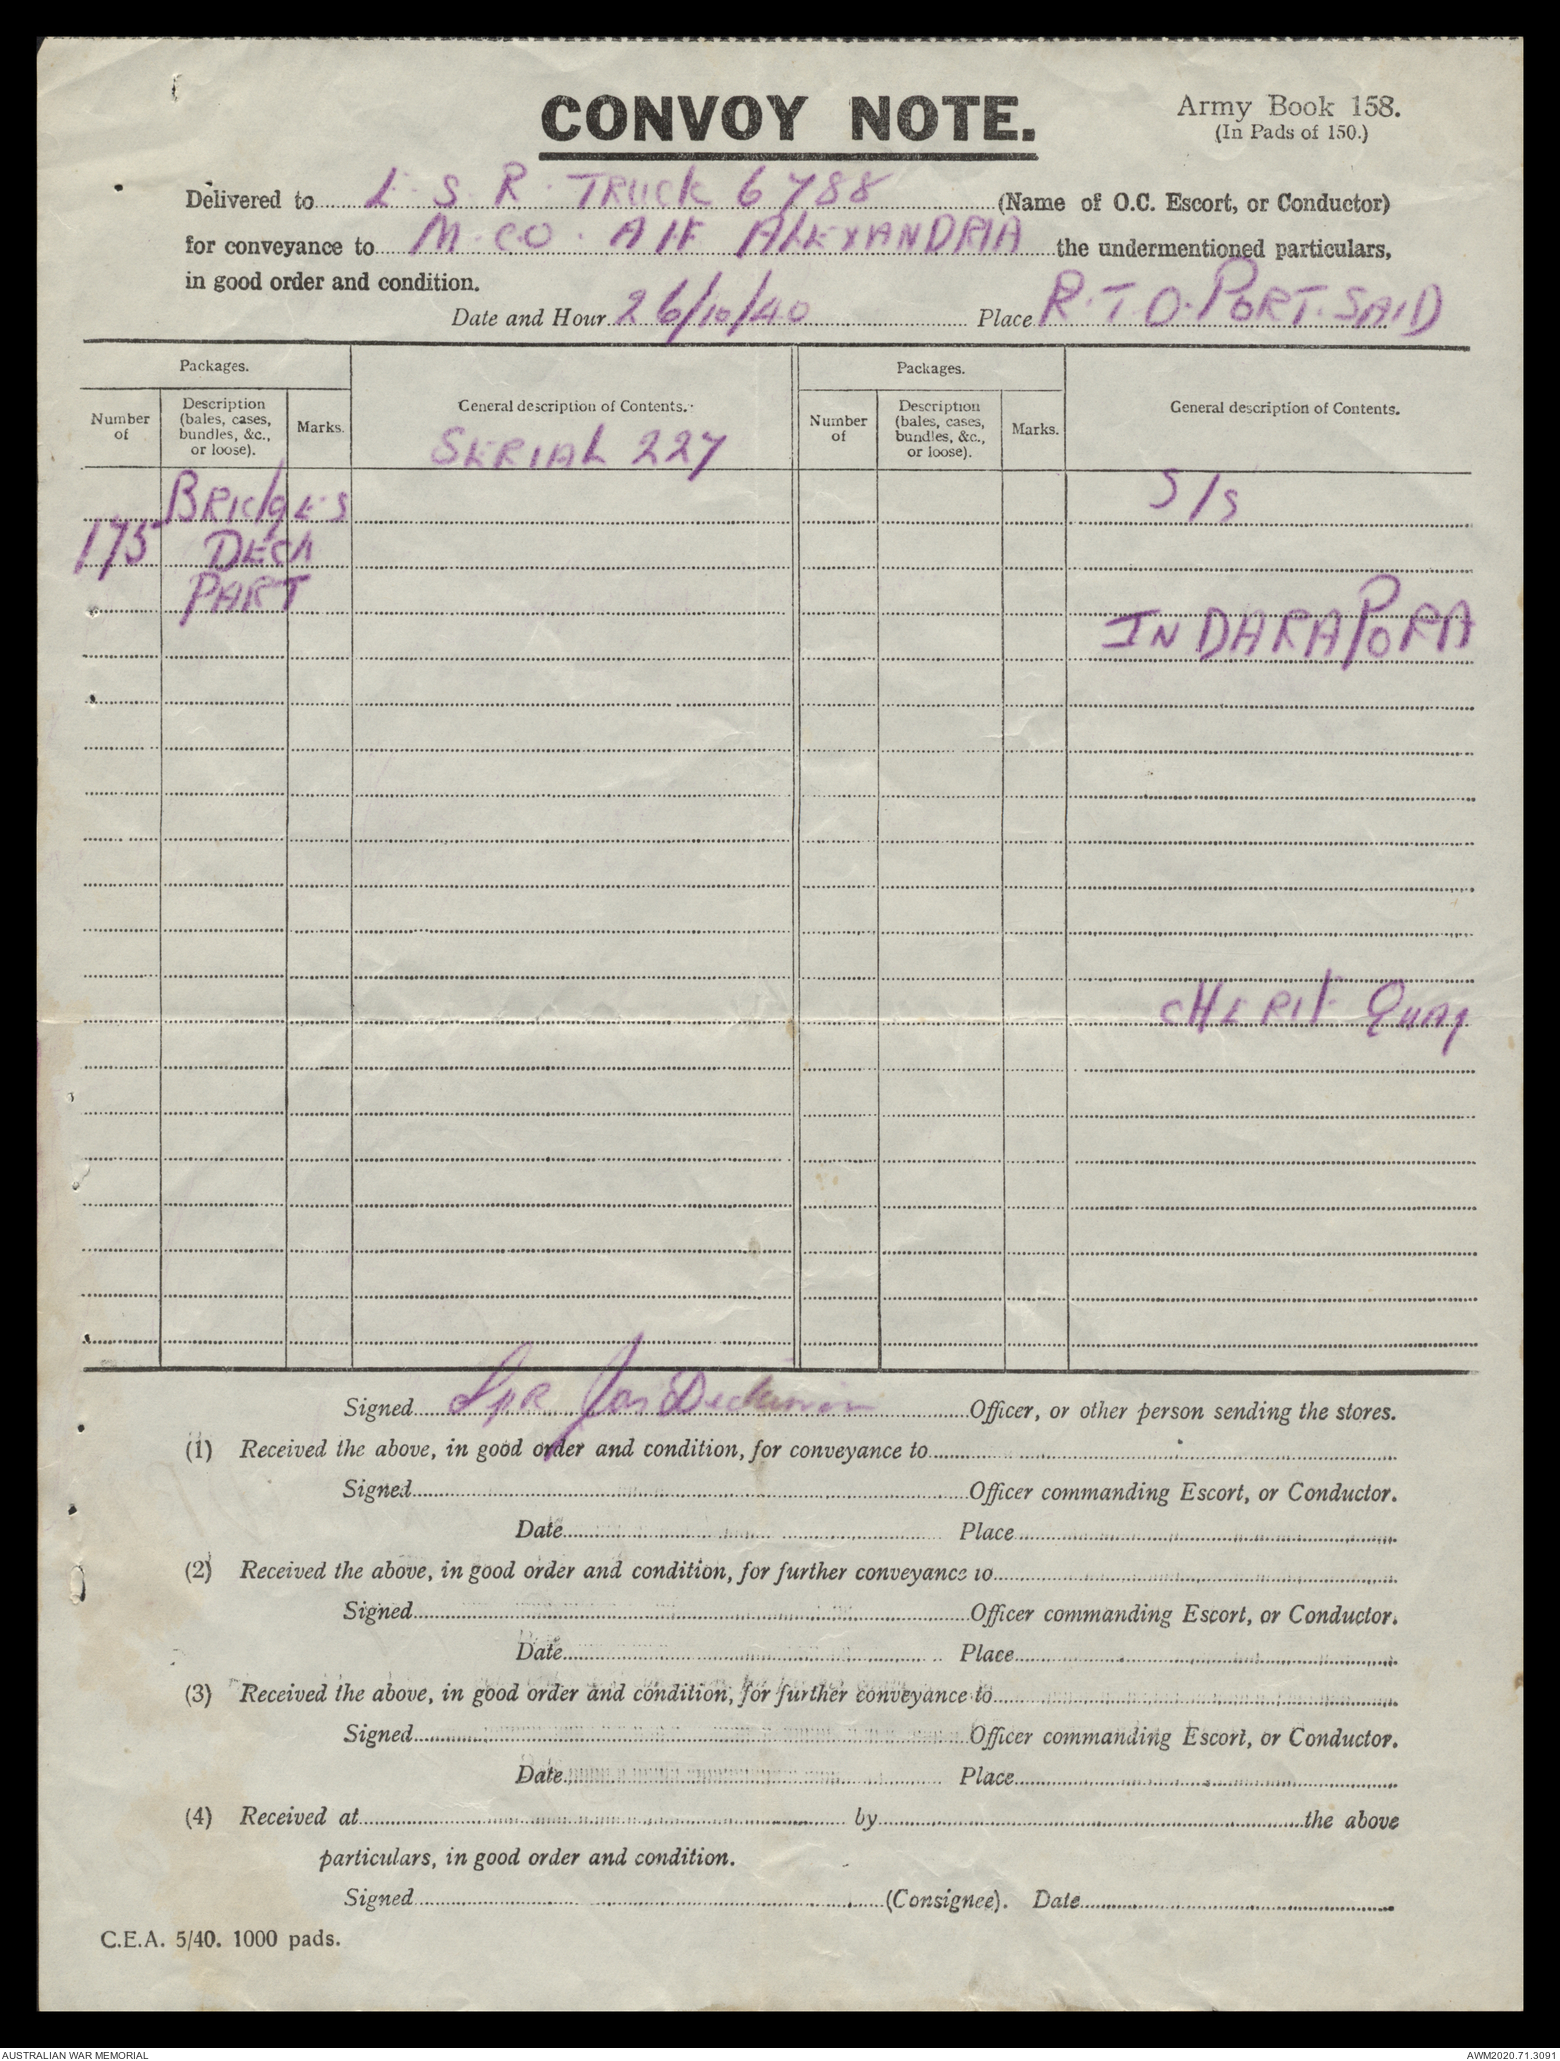 CONVOY NOTE.
Army Book 158.
(In Pads of 150.)
Delivered to E. S. R. TRUCK 6788 (Name of O.C. Escort, or Conductor)
for conveyance to M.C.O. AIF ALEXANDRIA the undermentioned particulars,
in good order and condition.
Date and Hour 26/10/40 Place R.T.O. PORT. SAID
Packages. Packages.
Number of Description (bales, cases, bundles, &c., or loose). Marks. General description of Contents. Number of Description (bales, cases, bundles, &c., or loose). Marks. General description of Contents.
SERIAL 227
BRIDGES S/S
175 DECK
PART
INDARAPORA
CHERIF Quay
Signed Spr Jas Officer, or other person sending the stores.
(1) Received the above, in good order and condition, for conveyance to
Signed Officer commanding Escort, or Conductor.
Date Place
(2) Received the above, in good order and condition, for further conveyance to
Signed Officer commanding Escort, or Conductor.
Date Place
(3) Received the above, in good order and condition, for further conveyance to
Signed Officer commanding Escort, or Conductor.
Date Place
(4) Received at by the above
particulars, in good order and condition.
Signed (Consignee). Date
C.E.A. 5/40. 1000 pads.
AUSTRALIAN WAR MEMORIAL AWM2020.71.3091